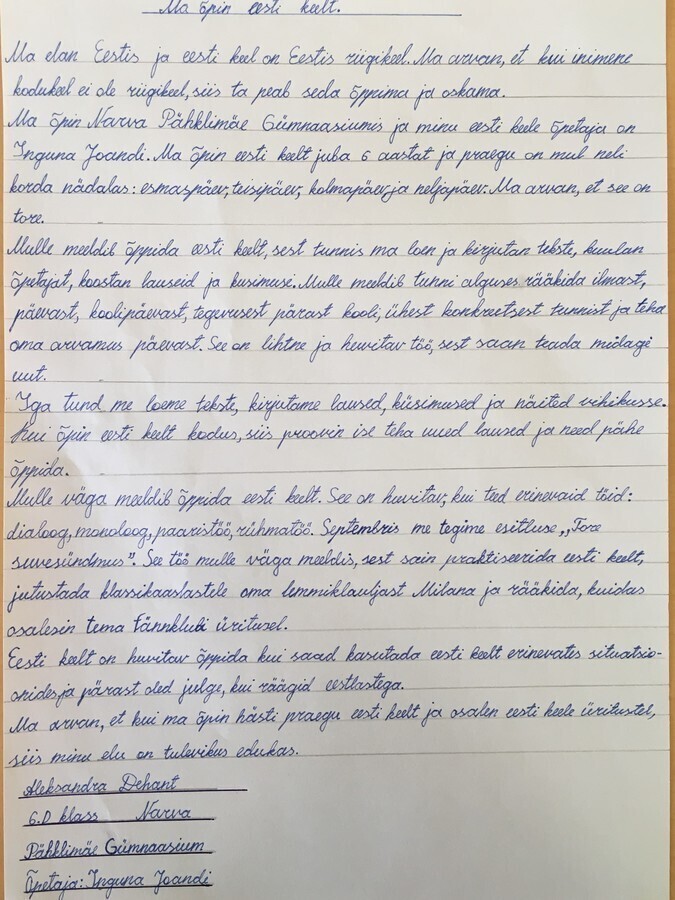 Ma õpin eesti keelt.
Ma elan Eestis ja eesti keel on Eestis riigikeel. Ma arvan, et kui inimene
kodukeel ei ole riigikeel, siis ta peab seda õppima ja oskama.
Ma õpin Narva Pähklimäe Gümnaasiumis ja minu eesti keele õpetaja on
Inguna Joandi. Ma õpin eesti keelt juba 6 aastat ja praegu on mul neli
korda nädalas: esmaspäev, teisipäev, kolmapäev ja neljapäev. Ma arvan, et see on
tore.
Mulle meeldib õppida eesti keelt, sest tunnis ma loen ja kirjutan tekste, kuulan
õpetajat, koostan lauseid ja kusimusi. Mulle meeldib tunni alguses rääkida ilmast,
päevast, koolipäevast, tegevusest pärast kooli, ühest konkreetsest tunnist ja teha
oma arvamus päevast. See on lihtne ja huvitav töö, sest saan teada midagi
uut.
Iga tund me loeme tekste, kirjutame laused, küsimused ja näited vihikusse.
Kui õpin eesti keelt kodus, siis proovin ise teha uued laused ja need pähe
õppida.
Mulle väga meeldib õppida eesti keelt. See on huvitav, kui teed erinevaid töid:
dialoog, monoloog, paaristöö, rühmatöö. Septembris me tegime esitluse „Tore
suvesündmus". See töö mulle väga meeldis, sest sain praktiseerida eesti keelt,
jutustada klassikaaslastele oma lemmiklauljast Milana ja rääkida, kuidas
osalesin tema Fännklubi üritusel.
Eesti keelt on huvitav õppida kui saad kasutada eesti keelt erinevates situatsio-
onides ja pärast oled julge, kui räägid eestlastega.
Ma arvan, et kui ma õpin hästi praegu eesti keelt ja osalen eesti keele üritustel,
siis minu elu on tulevikus edukas.
Aleksandra Dehant
6.D klass Narva
Pähklimäe Gümnaasium
Õpetaja: Inguna Joandi